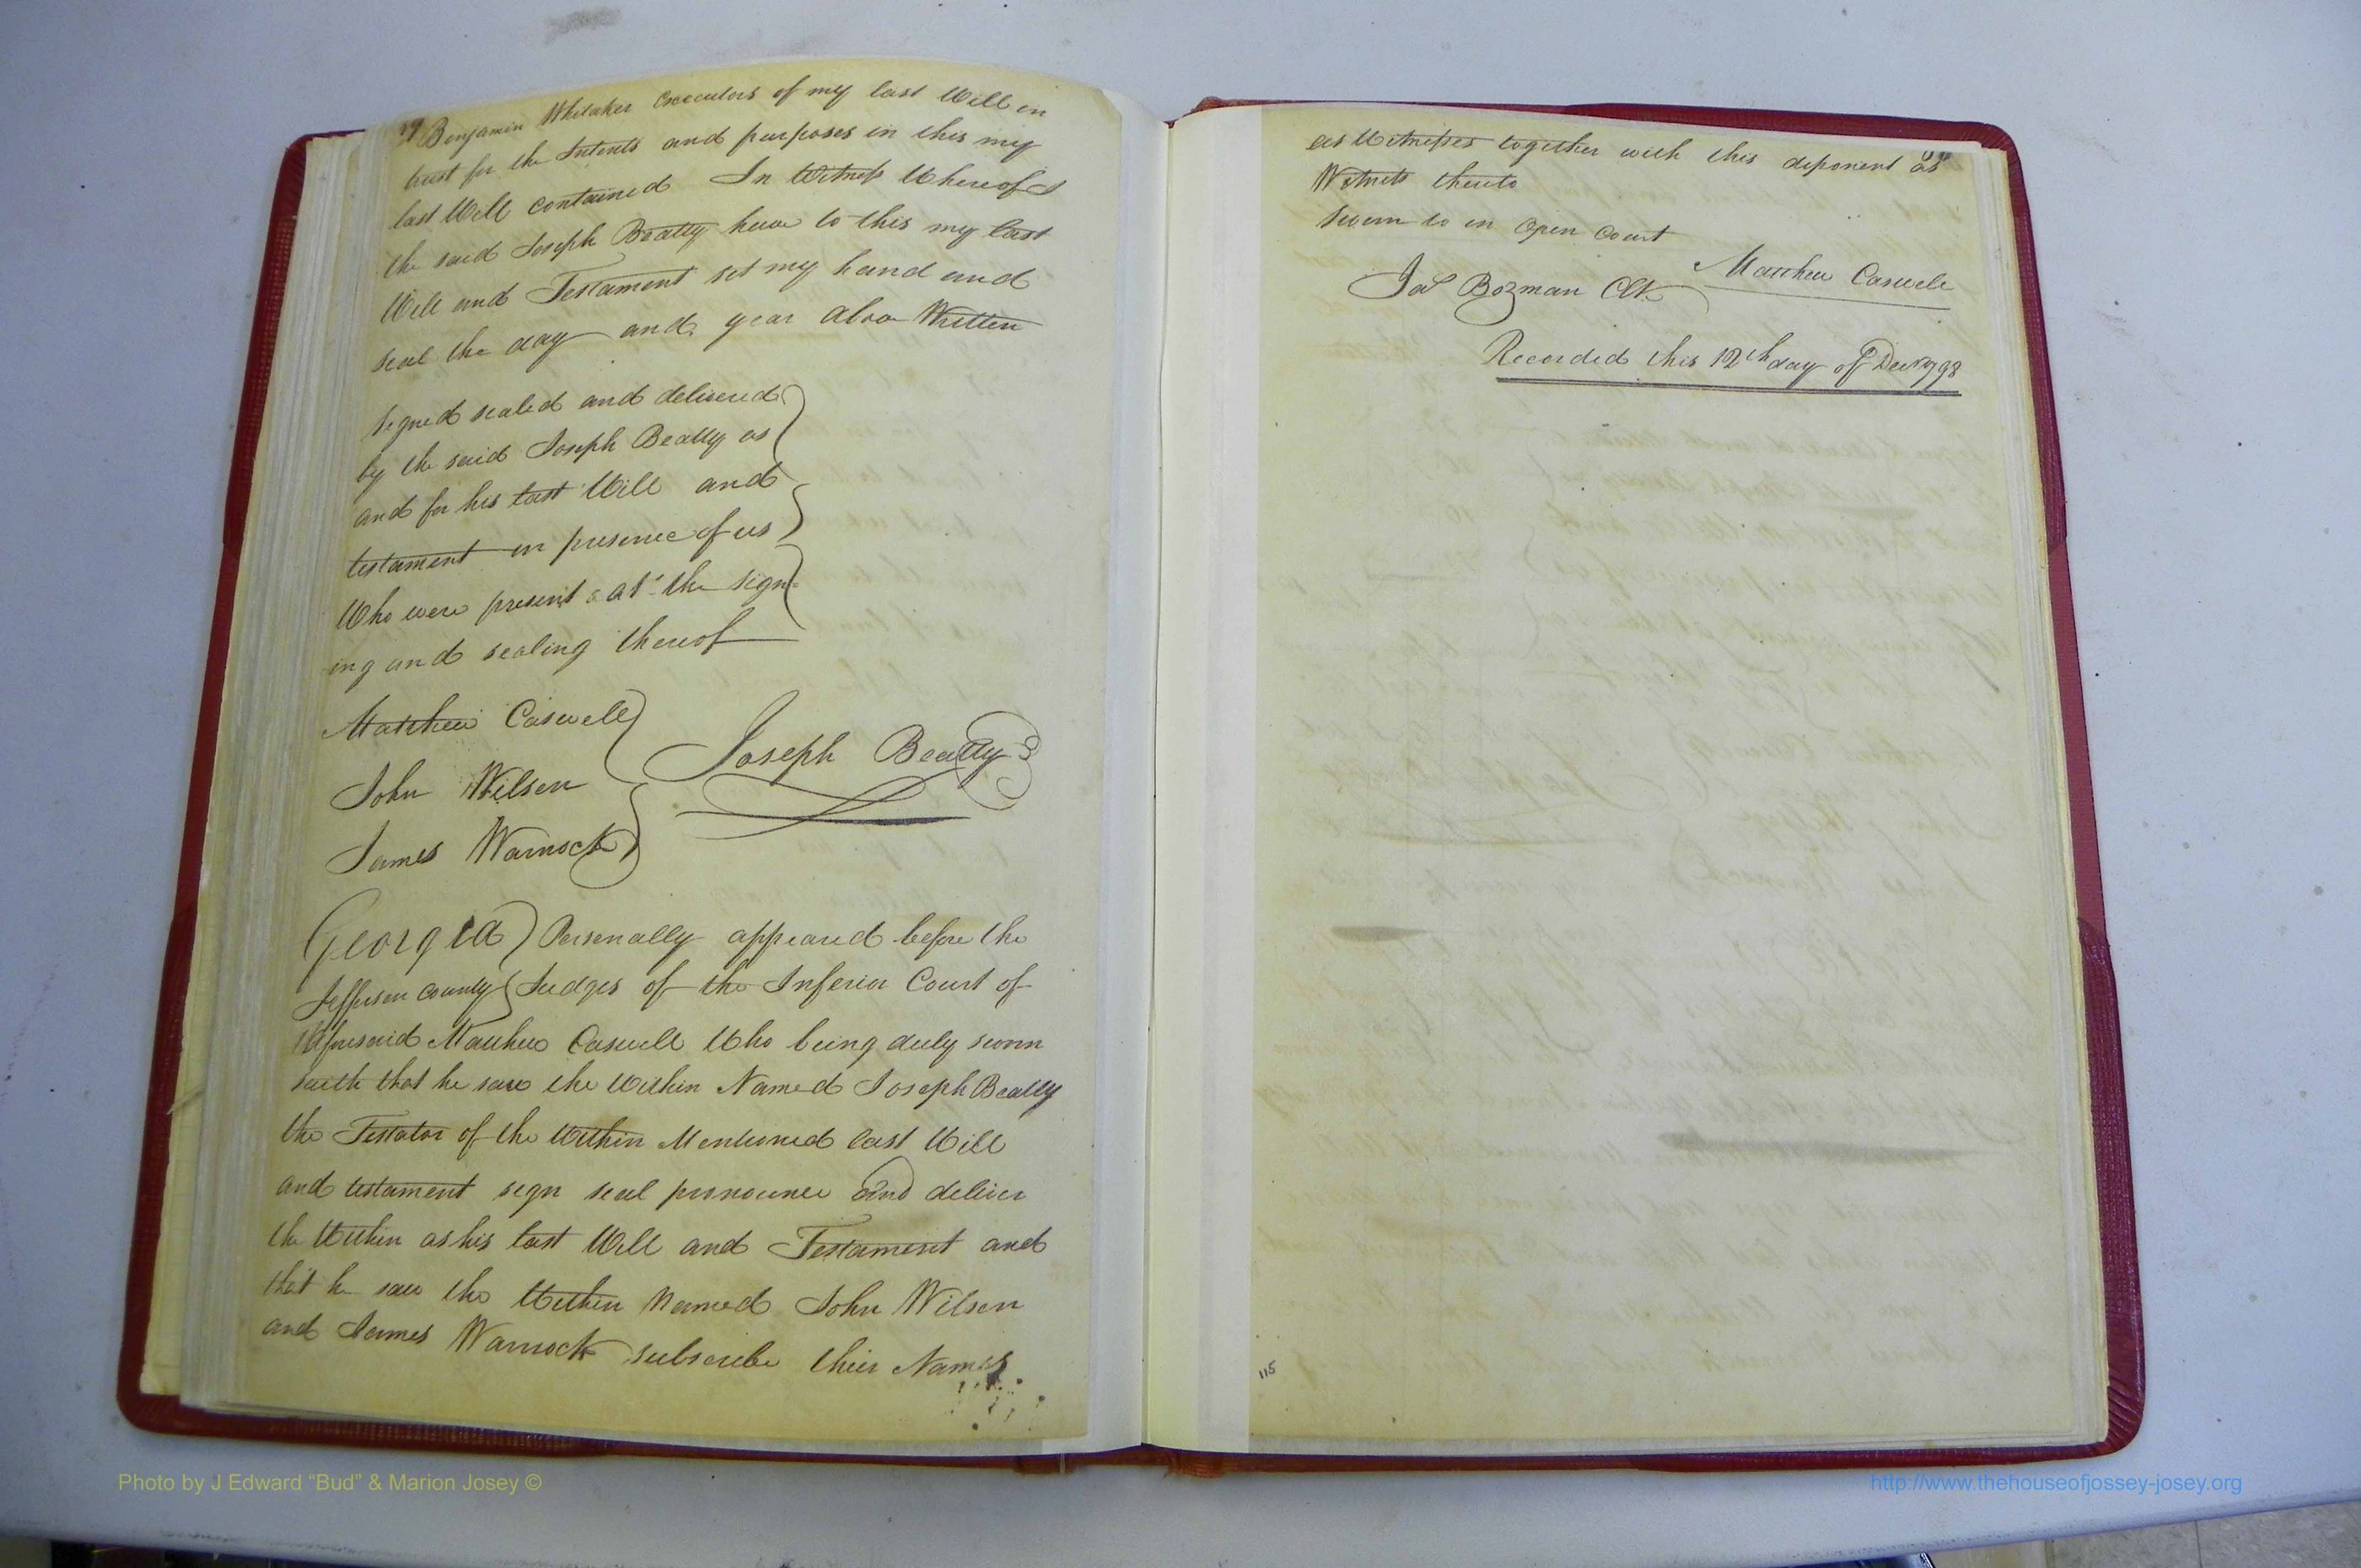 Benjamin Whitaker Executors of my last Will in
trust for the Intents and purposes in this my
last Will contained In Witness Whereof I
the said Joseph Beatty have to this my last
Will and Testament set my hand and
seal the day and year above Written
Signed sealed and delivered
by the said Joseph Beatty as
and for his last Will and
testament in presence of us
Who were present at the sign=
ing and sealing thereof
Matthew Caswell
John Wilson
James Warnock
Joseph Beatty
Georgia Personally appeared before the
Jefferson County Judges of the Inferior Court of
Aforesaid Matthew Caswell Who being duly sworn
saith that he saw the Within Named Joseph Beatty
the Testator of the Within Mentioned last Will
and testament sign seal pronounce and deliver
the Within as his last Will and Testament and
that he saw the Within Named John Wilson
and James Warnock subscribe their Names
as Witnesses together with this deponent as
Witness thereto
Sworn to in Open Court
Jas Bozman Clk
Matthew Caswell
Recorded this 12th day of Decr 1798
115
Photo by J Edward “Bud” & Marion Josey ©
http://www.thehouseofjossey-josey.org